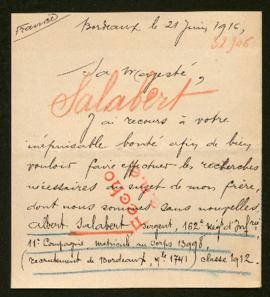 France
Bordeaux le 21 Juin 1916,
Sa Majesté,
Salabert
J'ai recours à votre
inépuisable bonté afin de bien
vouloir faire effectuer les recherches
nécessaires au sujet de mon frère,
dont nous sommes sans nouvelles
Albert Salabert Sergent, 162e Régt d'Infrie
11e Compagnie matricule au corps 13998,
(recrutement de Bordeaux, 1741) classe 1912.